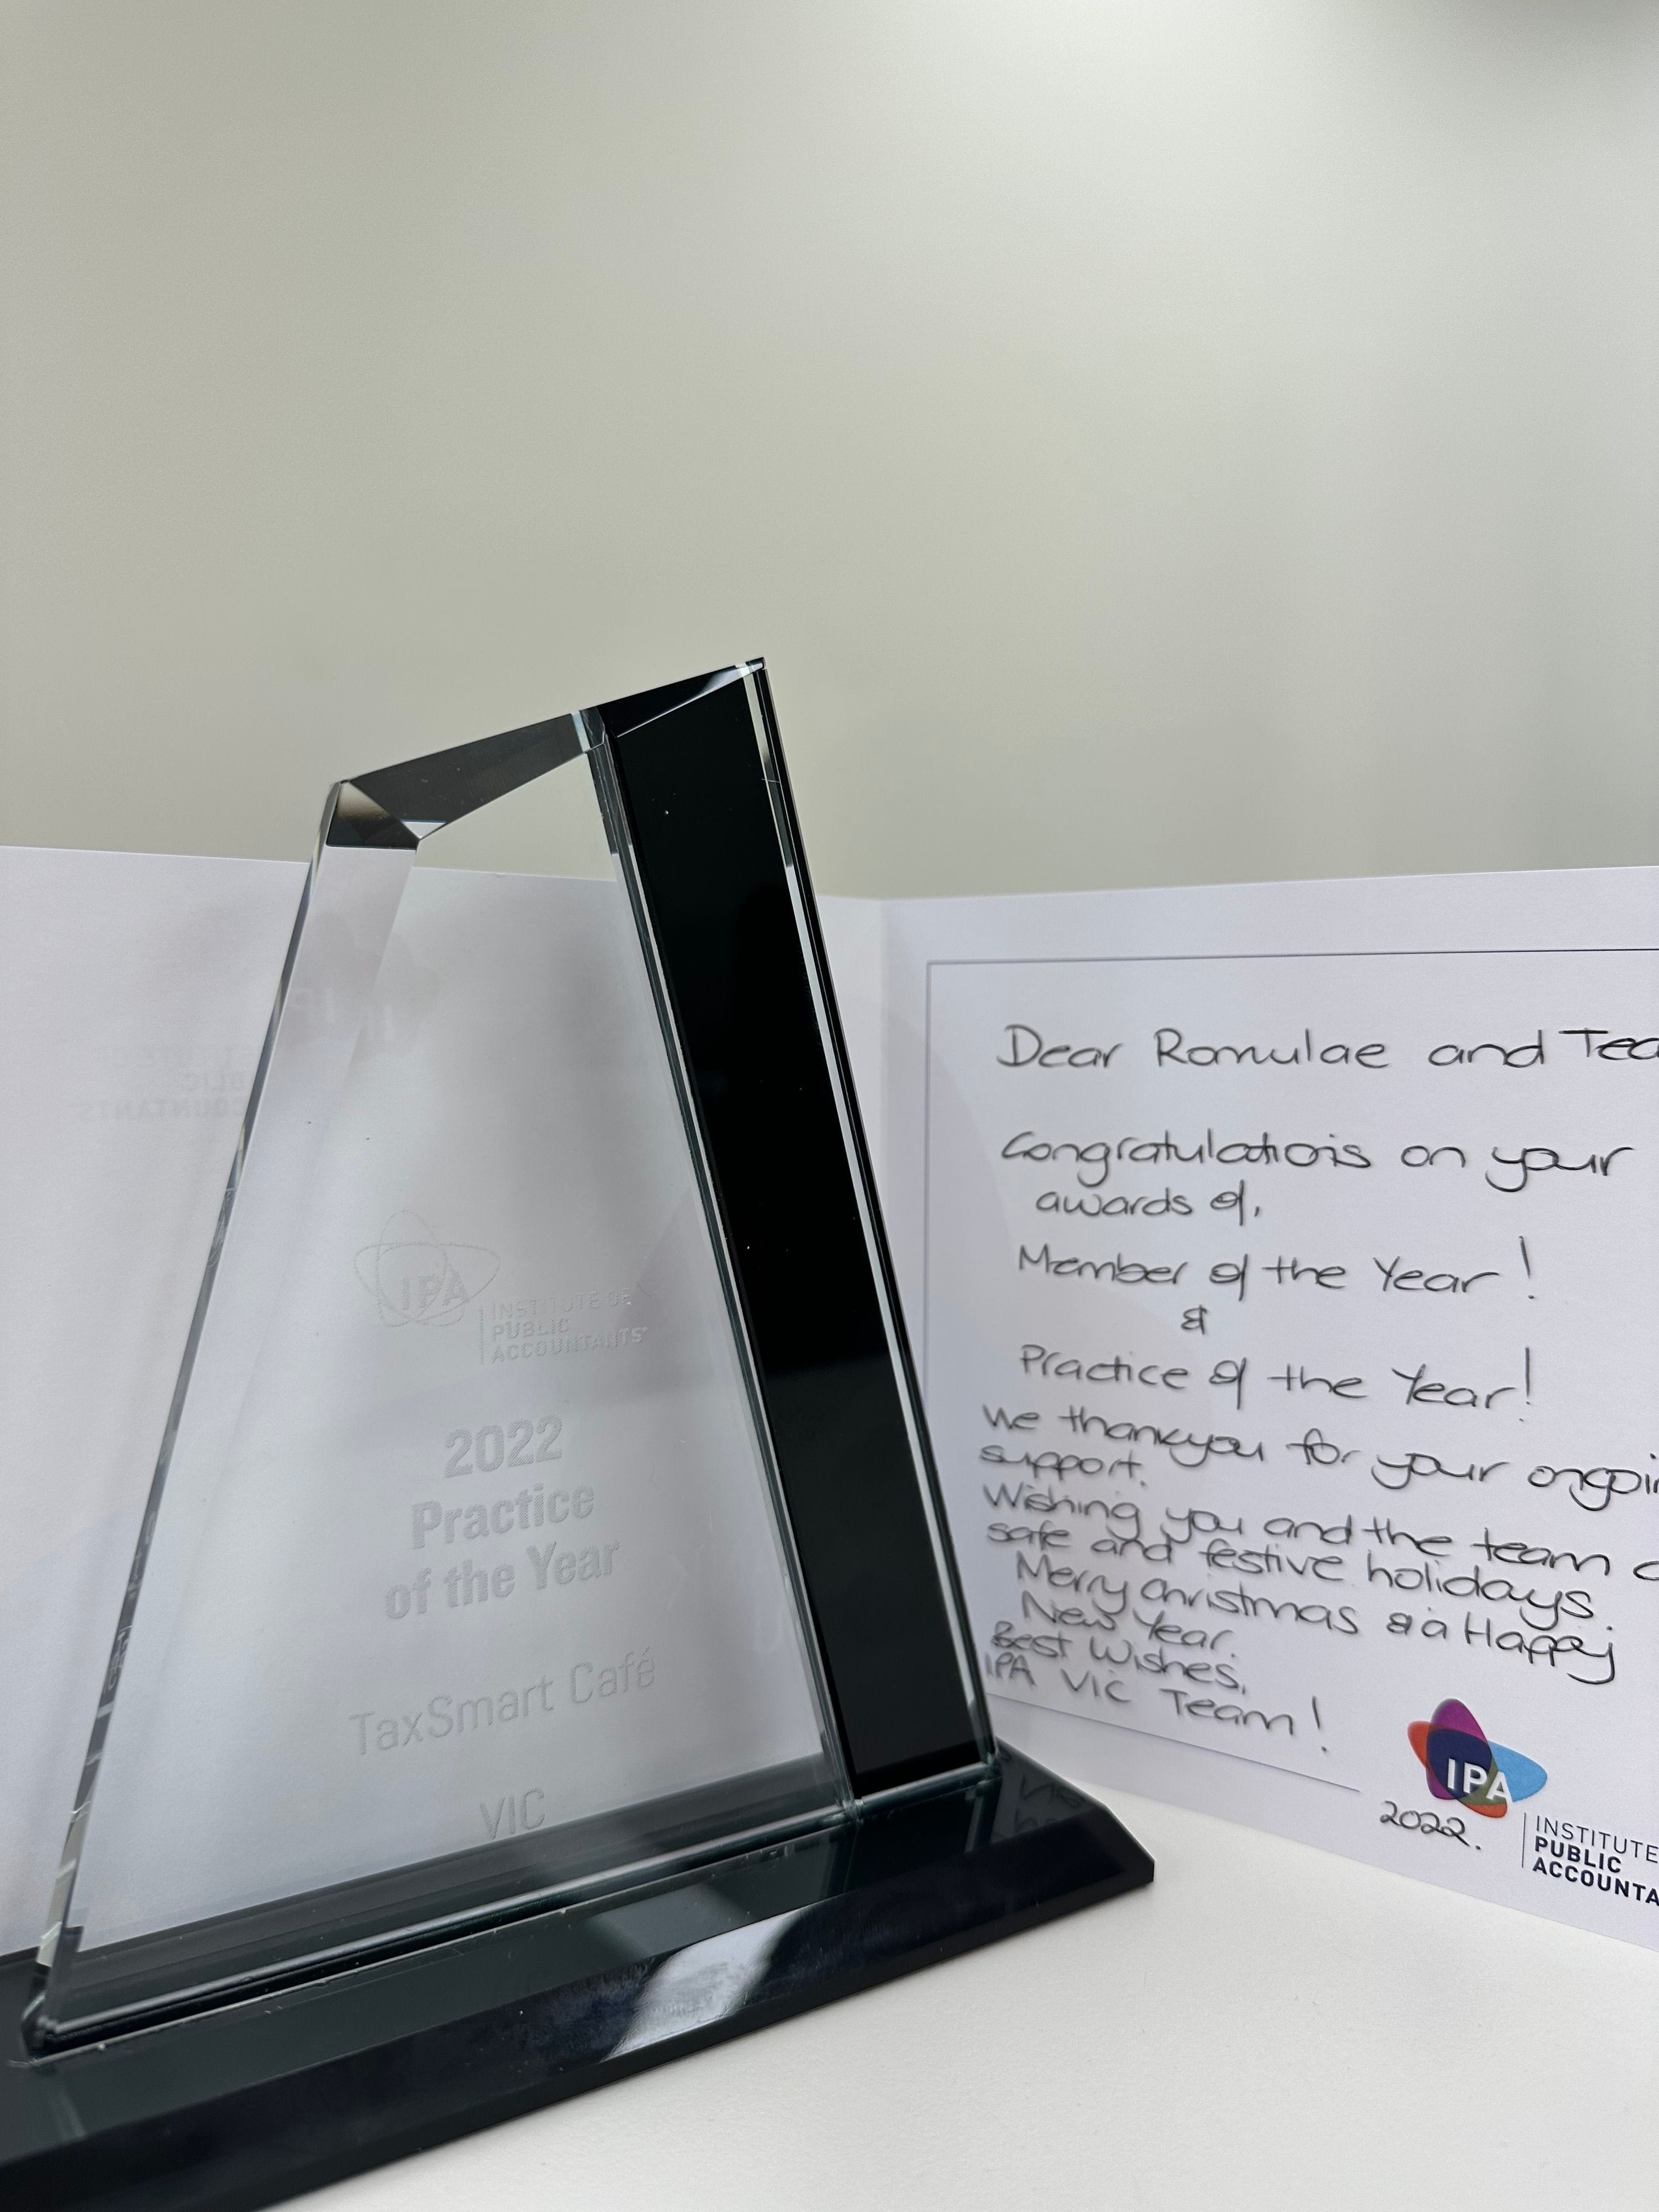 IPA
INSTITUTE OF
PUBLIC
ACCOUNTANTS
2022
Practice
of the Year
TaxSmart Café
VIC
Dear Romulae and Tea
Congratulations on your
awards of,
Member of the Year!
&
Practice of the Year!
We thankyou for your ongoin
support.
Wishing you and the team a
safe and festive holidays.
Merry Christmas & a Happy
New Year.
Best Wishes,
IPA VIC Team!
IPA
2022.
INSTITUTE
PUBLIC
ACCOUNTA